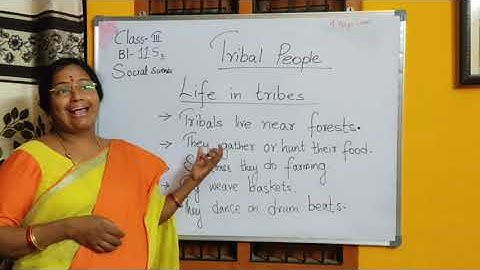 Class-III
Bl-11 S2
Social Science
Tribal People
Life in tribes
→ Tribals live near forests.
→ They gather or hunt their food.
they do farming.
→ weave baskets.
They dance on drum beats.